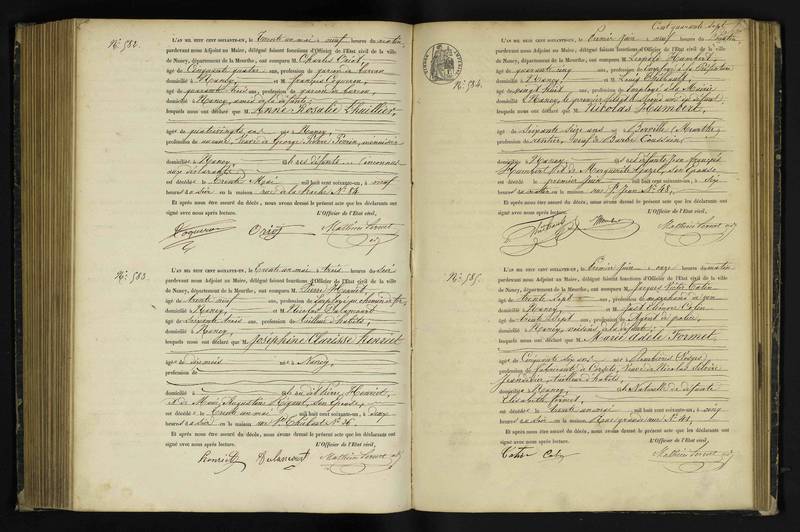 No. 582.
L'AN MIL HUIT CENT SOIXANTE-UN, le trente un mai à neuf heures du matin,
pardevant nous Adjoint au Maire, délégué faisant fonctions d'Officier de l'Etat civil de la ville
de Nancy, département de la Meurthe, ont comparu M. Charles Oriot,
âgé de cinquante quatre ans, profession de garçon de bureau
domicilié à Nancy et M. François Coqueron,
âgé de quarante trois ans, profession de garçon de bureau,
domicilié à Nancy, amis de la défunte;
lesquels nous ont déclaré que M. Anne Rosalie Thaillier,
âgée de quatrevingts ans née à Nancy,
profession de veuve de George Pierre Perrin, menuisier
domiciliée à Nancy,
aux déclarants
est décédée le trente Mai mil huit cent soixante-un, à neuf
heures du soir en la maison rue de la hache No. 84
Et après nous être assuré du décès, nous avons dressé le présent acte que les déclarants ont
signé avec nous après lecture. L'Officier de l'Etat civil,
Coqueron Oriot
No. 583.
L'AN MIL HUIT CENT SOIXANTE-UN, le trente un mai à trois heures du soir
pardevant nous Adjoint au Maire, délégué faisant fonctions d'Officier de l'Etat civil de la ville
de Nancy, département de la Meurthe, ont comparu M. Pierre Henriet
âgé de trente neuf ans, profession de employé au chemin de fer,
domicilié à Nancy, et M. Nicolas
âgé de soixante trois ans, profession de tailleur d'habits,
domicilié à Nancy,
lesquels nous ont déclaré que M. Joséphine Clarisse Henriet
âgée de dix mois née à Nancy,
profession de
domicilié à du dit Pierre Henriet,
& de Marie Augustine son épouse,
est décédée le trente un mai mil huit cent soixante-un, à
heures du soir en la maison rue St. Thiébaut No. 36.
Et après nous être assuré du décès, nous avons dressé le présent acte que les déclarants ont
signé avec nous après lecture. L'Officier de l'Etat civil,
Henriet
Cent quarante sept
No. 584.
L'AN MIL HUIT CENT SOIXANTE-UN, le premier juin à neuf heures du matin,
pardevant nous Adjoint au Maire, délégué faisant fonctions d'Officier de l'Etat civil de la ville
de Nancy, département de la Meurthe, ont comparu M. Léopold Humbert,
âgé de quarante cinq ans, profession de employé à la Préfecture
domicilié à Nancy et M. Louis Thiébault,
âgé de vingt huit ans, profession de employé à la Mairie
domicilié à Nancy, le premier fils et le second ami du défunt
lesquels nous ont déclaré que M. Nicolas Humbert,
âgé de soixante seize ans né à Gerville (Meurthe)
profession de rentier, veuf de Barbe Toussaint,
domicilié à Nancy, fils des défunts Jean François
Humbert & de Marguerite son épouse
est décédé le premier juin mil huit cent soixante-un, à six
heures du matin en la maison rue St. Jean No. 48,
Et après nous être assuré du décès, nous avons dressé le présent acte que les déclarants ont
signé avec nous après lecture. L'Officier de l'Etat civil,
Thiébault Humbert
No. 585.
L'AN MIL HUIT CENT SOIXANTE-UN, le premier juin à onze heures du matin
pardevant nous Adjoint au Maire, délégué faisant fonctions d'Officier de l'Etat civil de la ville
de Nancy, département de la Meurthe, ont comparu M. Jacques Victor Colin
âgé de trente sept ans, profession de marchand
domicilié à Nancy, et M. Colin
âgé de trente sept ans, profession de Agent de police,
domicilié à Nancy, voisins de la défunte;
lesquels nous ont déclaré que M. Marie Adèle Formet
âgée de cinquante six ans née à Plombières (Vosges)
profession de fabricante de corsets, veuve de Nicolas
tailleur d'habits,
domiciliée à Nancy, fille naturelle de défunte
Elisabeth Formet,
est décédée le trente un mai mil huit cent soixante-un, à cinq
heures du soir en la maison rue No. 41,
Et après nous être assuré du décès, nous avons dressé le présent acte que les déclarants ont
signé avec nous après lecture. L'Officier de l'Etat civil,
Colin